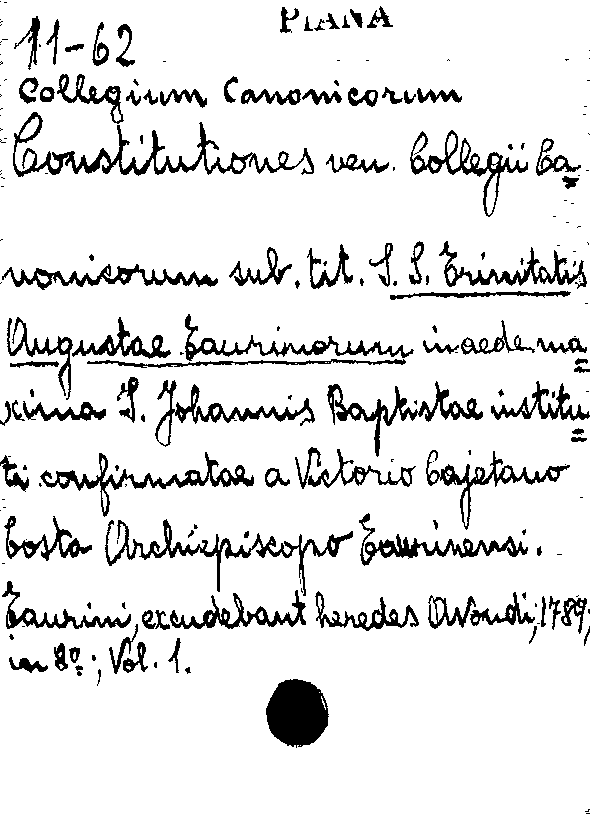 PIANA
11-62
Collegium Canonicorum
Constitutiones ven. Collegii Ca=
nonicorum sub. tit. S. S. Trinitatis
Augustae Taurinorum in aede ma=
xima S. Johannis Baptistae institu=
ti confirmatae a Victorio Cajetano
Costa Archiepiscopo Taurinensi.
Taurini, excudebant heredes Avondi, 1789;
in 8º; Vol. 1.